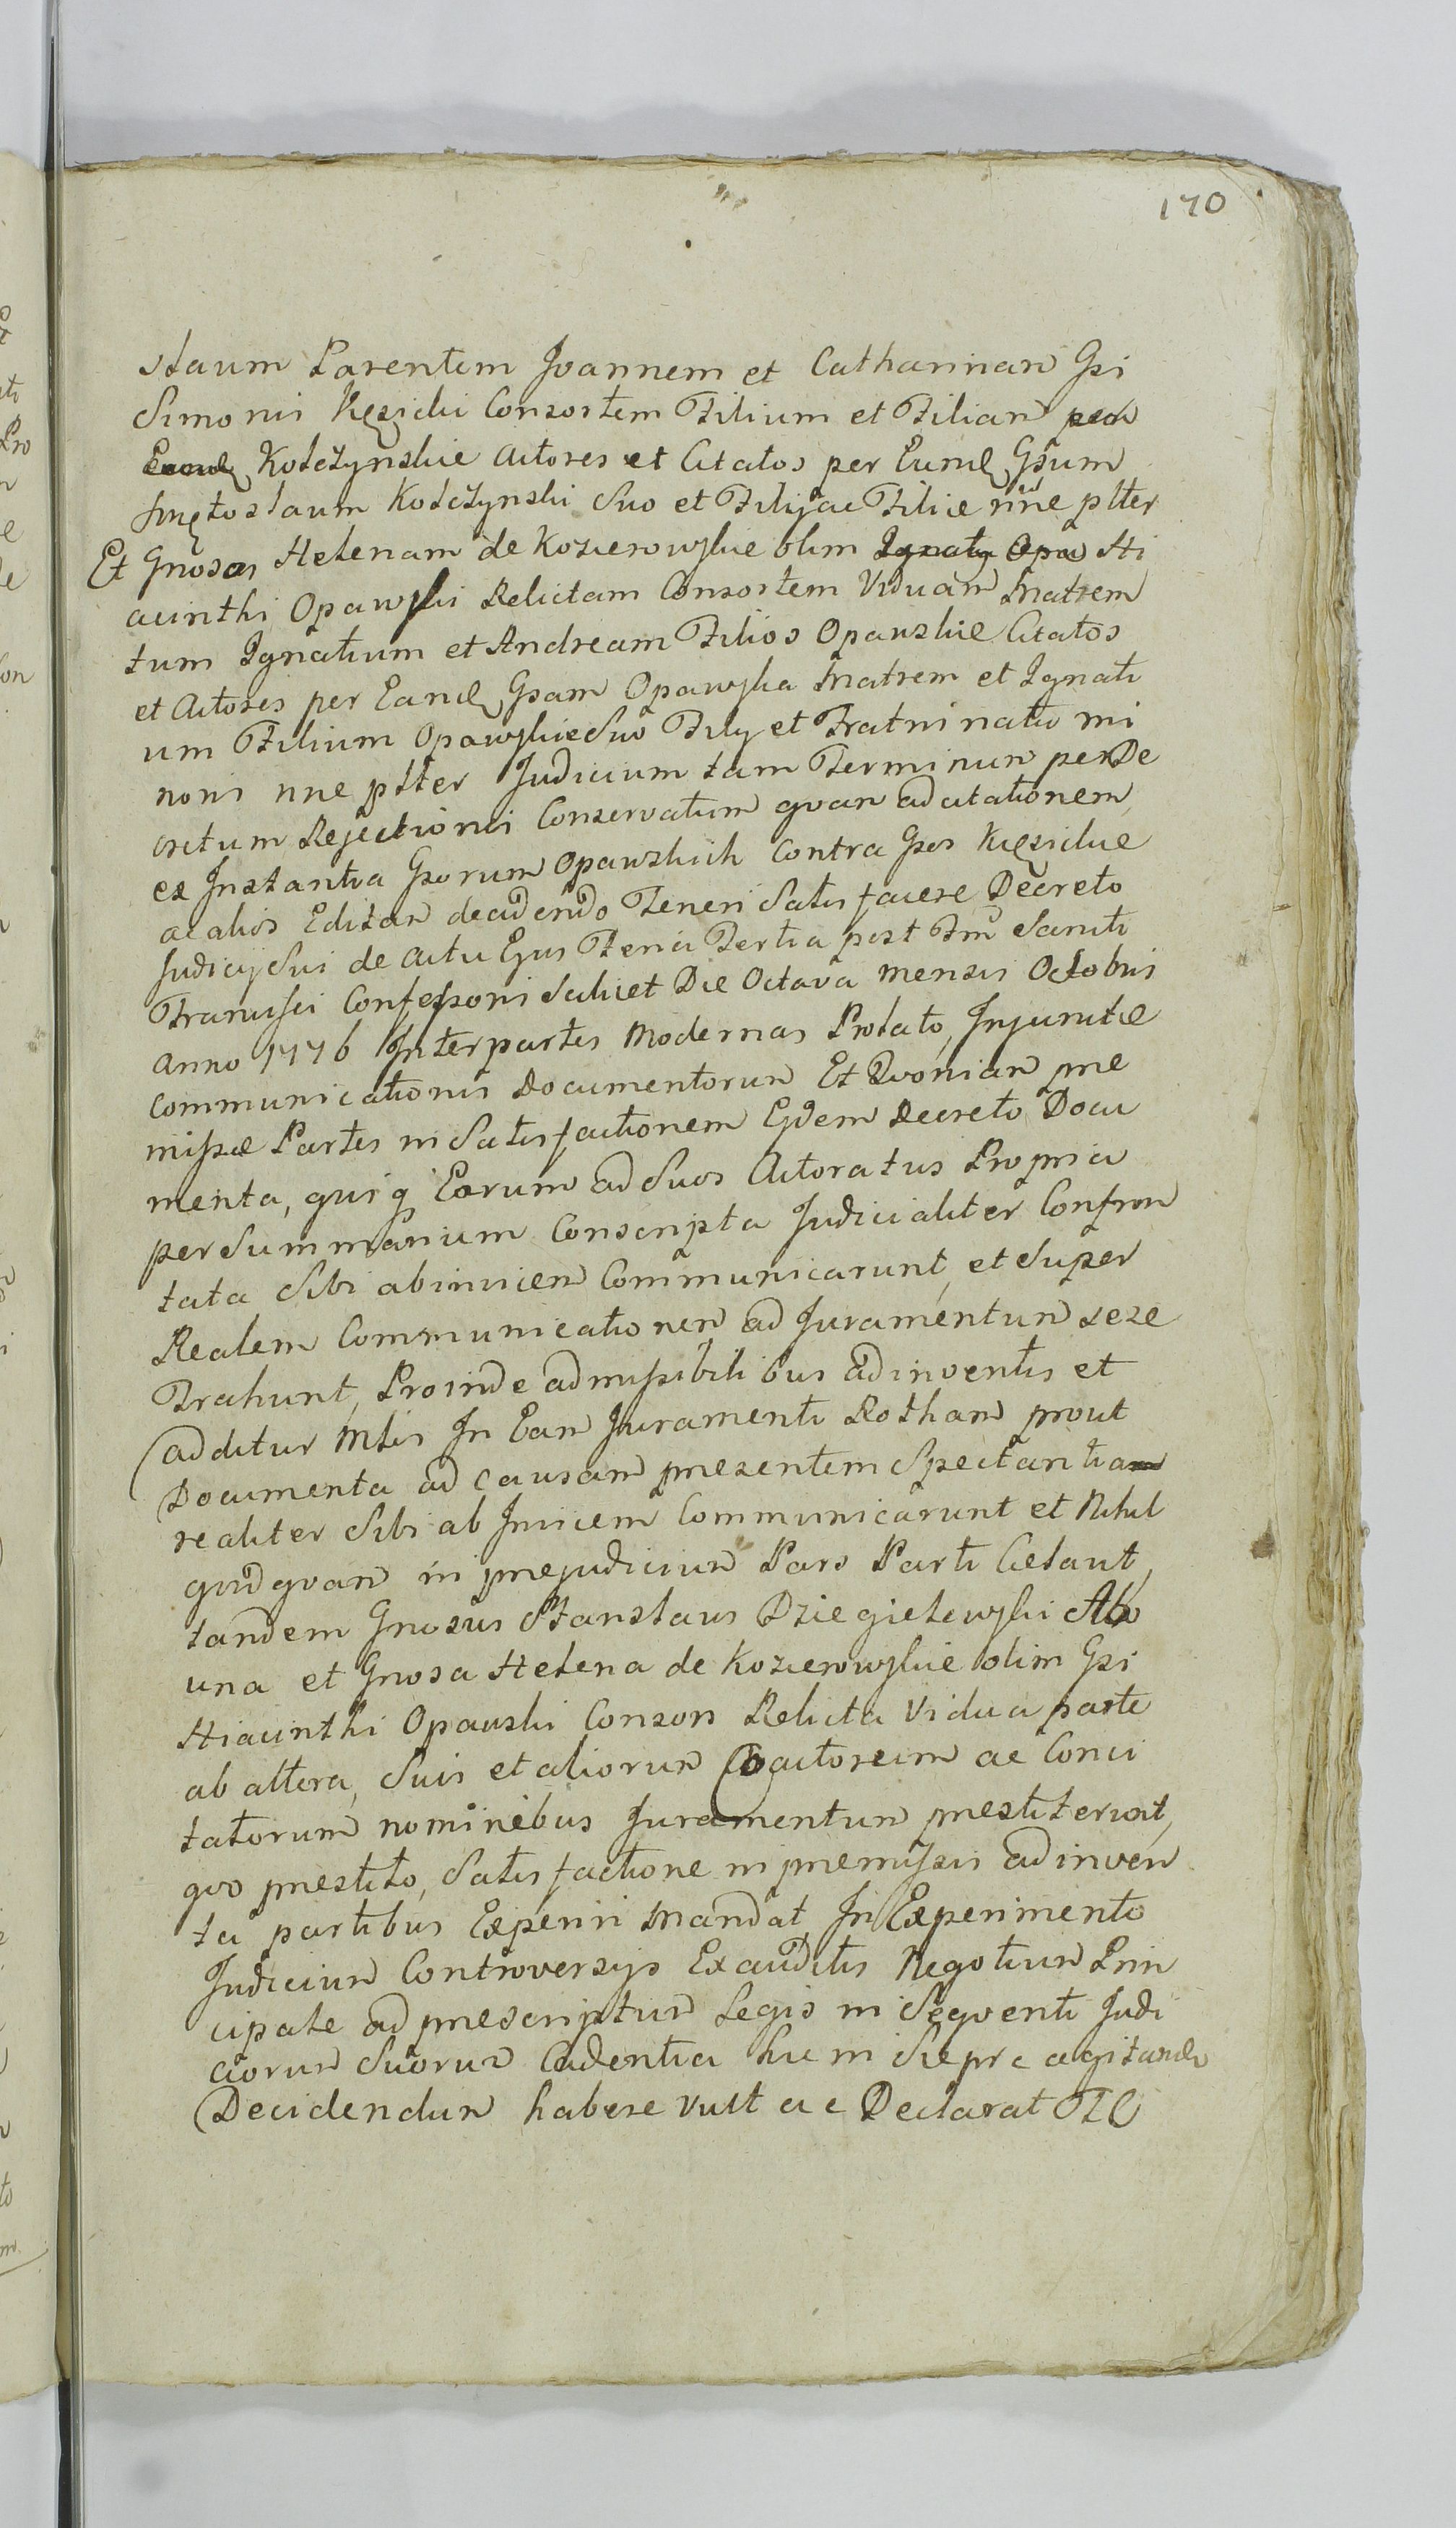 170
slaum Parentem Joannem et Catharinam Gsi
Simonis Kęsicki Consortem Filium et Filiam per
Eund Kołczynskie Actores et Citatos per Eund Gsum
Swiętoslaum Kołczynski Suo et Filij ac Filie nne plter
Et Gnosas Helenam de Kozierowskie olim Ignaty Opa Hi
acinthi Opawski Relictam Consortem Viduam Matrem
tum Ignatium et Andream Filios Opawskie Citatos
et Actores per Eand Gsam Opawska Matrem et Ignati
um Filium Opawskie Suo Fily et Fratri natu mi
noris nne plter Judicium tam Terminum per De
cretum Rejectionis Conservatum quam ad citationem
ex Instantia Gsorum Opawskich Contra Gsos Kięsickie
ac alios Editam decidendo Teneri Satisfacere Decreto
Judicij Sui de Actu Ejus Feria Tertia post Fm Sancti
Francisci Confessoris Scilicet Die Octava mensis Octobris
Anno 1776 Inter partes Modernas Prolato, Injunctæ
Communicationis Documentorum Et Qvoniam præ
missæ Partes in Satisfactionem Ejdem Decreto Docu
menta, quiq Eorum ad Suos Actoratus Propria
per Summarium Conscripta Judicialiter Confron
tata Sibi abinvicem Communicarunt, et Super
Realem Communicationem ad Juramentum sese
Trahunt, Proinde admissibilibus adinventis et
additur Mtis In Eam Juramenti Rotham prout
Documenta ad causam presentem Spectantia
realiter Sibi ab Invicem Communicarunt et Nihil
quidquam in prejudicium Pars Parti Celavit,
tandem Gnosus Stanslaus Dziegielewski Ab
una et Gnosa Helena de Kozierowskie olim Gsi
Hiacinthi Opawski Consors Relicta Vidua parte
ab altera, Suis et aliorum Coactoreum ac Conci
tatorum nominibus Juramentum prestiterunt,
qvo prestito, Satisfactione in premissis adinven
ta partibus Experiri Mandat In Experimento
Judicium Controversijs Exauditis Negotium Prin
cipale ad prescriptum Legis in Seqventi Judi
ciorum Suorum Cadentia hic in Siepre agitandi
Decidendum habere vult ac Declarat